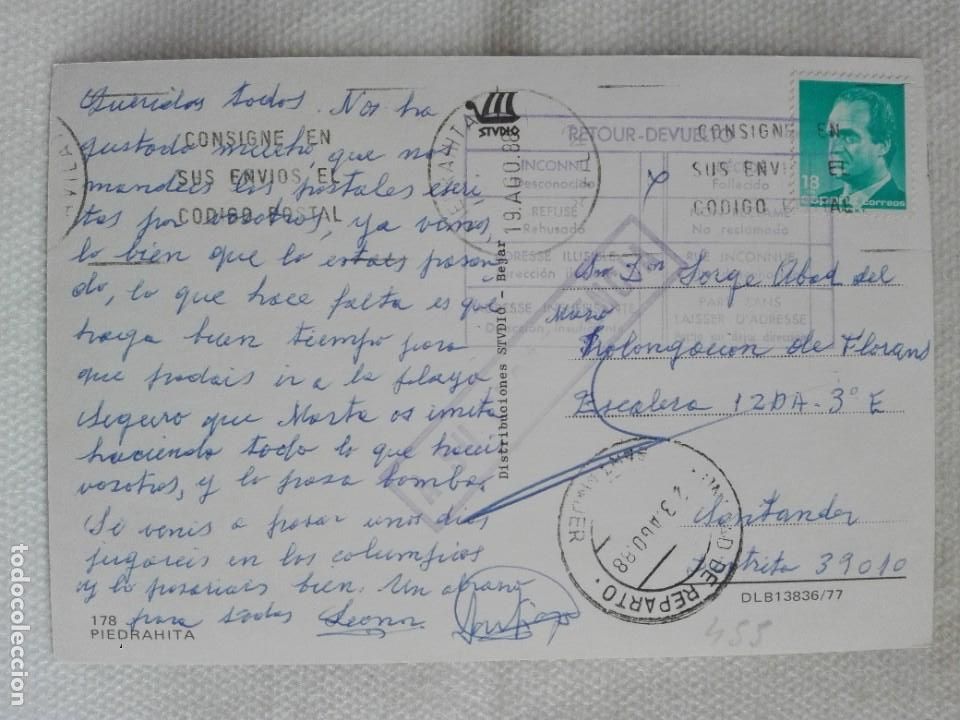 Queridos todos. Nos ha
gustado mucho, que nos
mandeis las postales escri-
tas por vosotros, ya vemos
lo bien que lo estais pasan-
do, lo que hace falta es que
haga buen tiempo para
que podais ir a la playa
Seguro que Marta os imita
haciendo todo lo que haceis
vosotros, y lo pasa bomba.
Si venis a pasar unos dias
jugareis en los columpios
y lo pasariais bien. Un abrazo
para todos Leonor
178
PIEDRAHITA
CONSIGNE EN
SUS ENVIOS EL
CODIGO POSTAL
STVDIO
PIEDRAHITA
19.AGO.88
Distribuciones STVDIO - Bejar
RETOUR-DEVUELTO
INCONNU
Desconocido
REFUSÉ
Rehusado
ADRESSE ILLISIBLE
ADRESSE INSUFFISANTE
Dirección insuficiente
Fallecido
NON RÉCLAMÉ
No reclamada
RUE INCONNUE
PARTI SANS
LAISSER D'ADRESSE
CONSIGNE EN
SUS ENVIOS EL
CODIGO POSTAL
18
España correos
Sr. Don Jorge Abad del
Mazo
Prolongacion de Florans
Escalera 12DA-3º E
Santander
39010
REPARTO
23.AGO.88
SANTANDER
DLB13836/77
455
todocoleccion